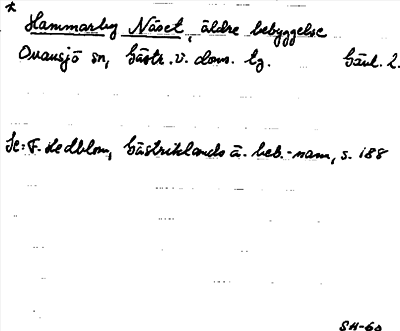 * Hammarby Näset, äldre bebyggelse
Ovansjö sn, Gästr. v. doms. tg. Gävl. l.
Se: F. Hedblom, Gästriklands ä. beb.-namn, s. 188
SH-60